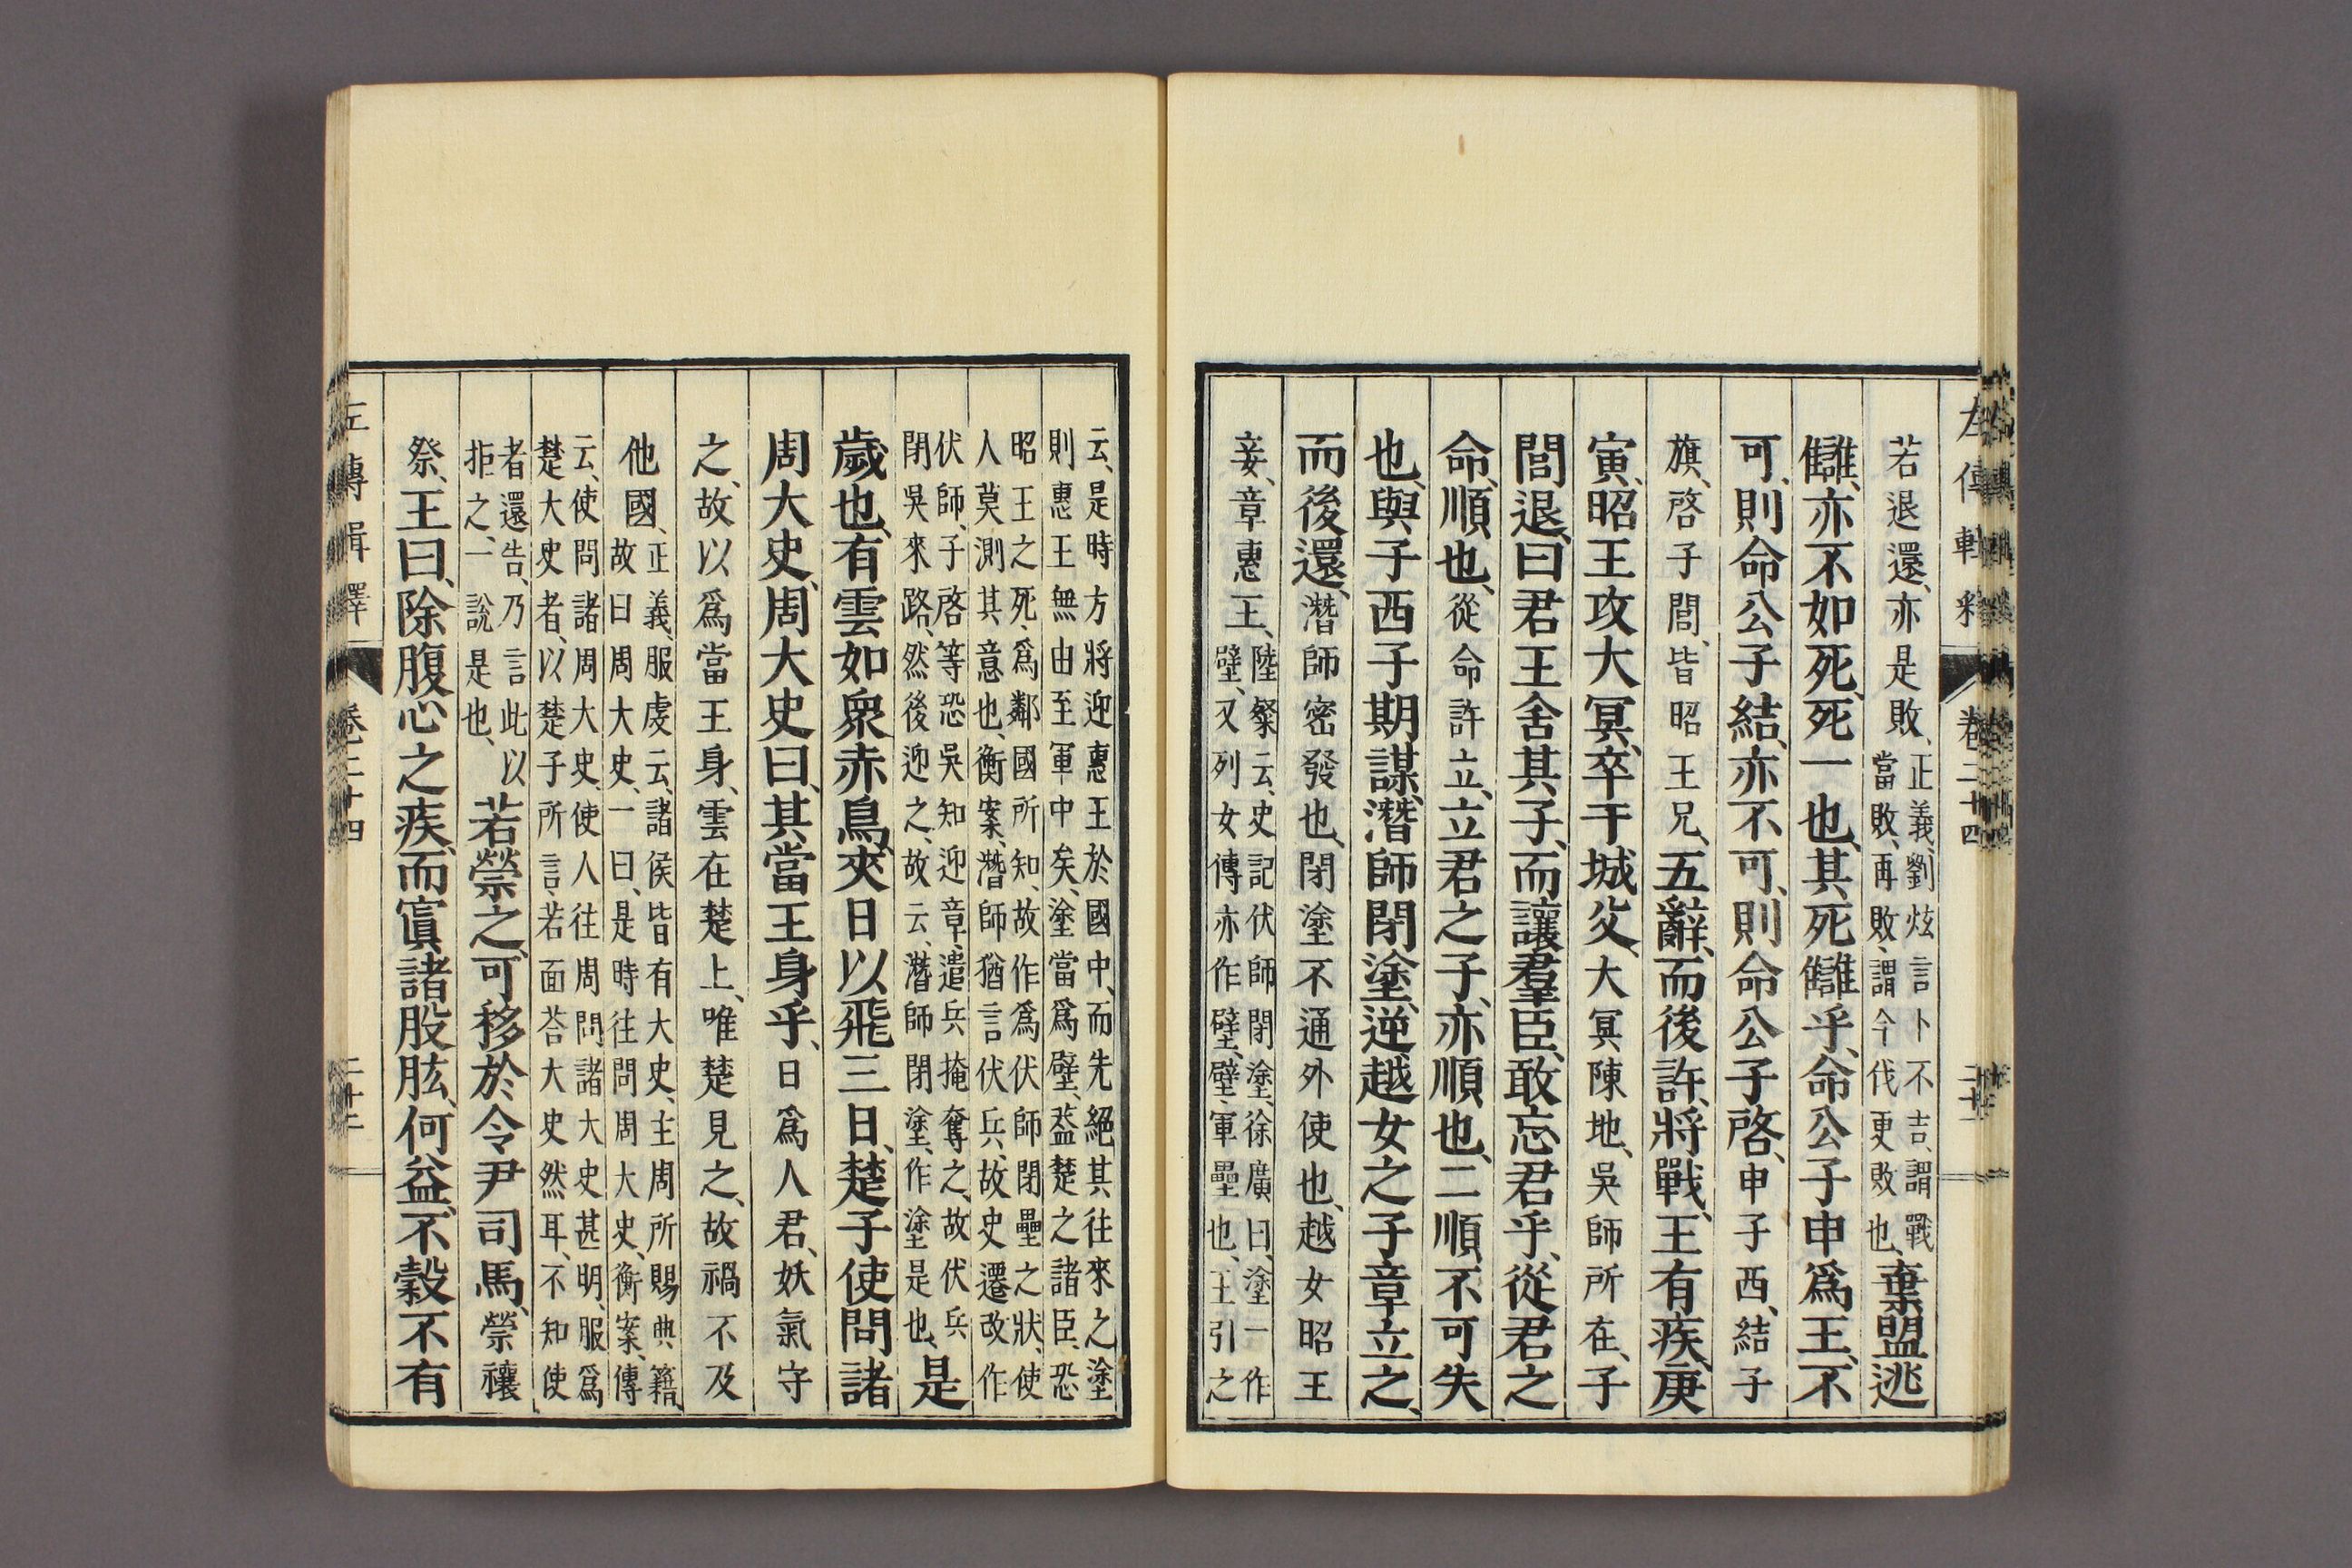 左傳輯釋 卷二十四 二十一
若退還、亦是敗、正義、劉炫言卜不吉、謂戰當敗、再敗、謂今伐更敗也、棄盟逃
讎、亦不如死、死一也、其死讎乎、命公子申爲王、不
可、則命公子結、亦不可、則命公子啓、申子西、結子
旗、啓子閭、皆昭王兄、五辭、而後許、將戰、王有疾、庚
寅、昭王攻大冥、卒于城父、大冥陳地、吳師所在、子
閭退、曰君王舍其子、而讓羣臣、敢忘君乎、從君之
命、順也、從命許立、立君之子、亦順也、二順、不可失
也、與子西子期謀、潛師閉塗、逆越女之子章立之、
而後還、潛師密發也、閉塗不通外使也、越女昭王
妾、章惠王、陸粲云、史記伏師閉塗、徐廣曰、塗一作壁、又列女傳亦作壁、壁軍壘也、王引之
云、是時方將迎惠王於國中、而先絕其往來之塗
則惠王無由至軍中矣、塗當爲壁、蓋楚之諸臣、恐
昭王之死、爲鄰國所知、故作爲伏師閉壘之狀、使
人莫測其意也、衡案、潛師猶言伏兵、故史遷改作
伏師、子啓等恐吳知迎章、遣兵掩奪之、故伏兵
閉吳來路、然後迎之、故云、潛師閉塗、作塗是也、是
歲也、有雲如衆赤鳥、夾日以飛三日、楚子使問諸
周大史、周大史曰、其當王身乎、日爲人君、妖氣守
之、故以爲當王身、雲在楚上、唯楚見之、故禍不及
他國、正義、服虔云、諸侯皆有大史、主周所賜典籍、故曰周大史、一曰、是時往問周大史、衡案、傳
云、使問諸周大史、使人往周問諸大史甚明、服爲
楚大史者、以楚子所言、若面荅大史然耳、不知使
者還告、乃言此以拒之、一說是也、若禜之、可移於令尹司馬、禜禳
祭、王曰、除腹心之疾、而寘諸股肱、何益、不穀不有
左傳輯釋 卷二十四 二十二